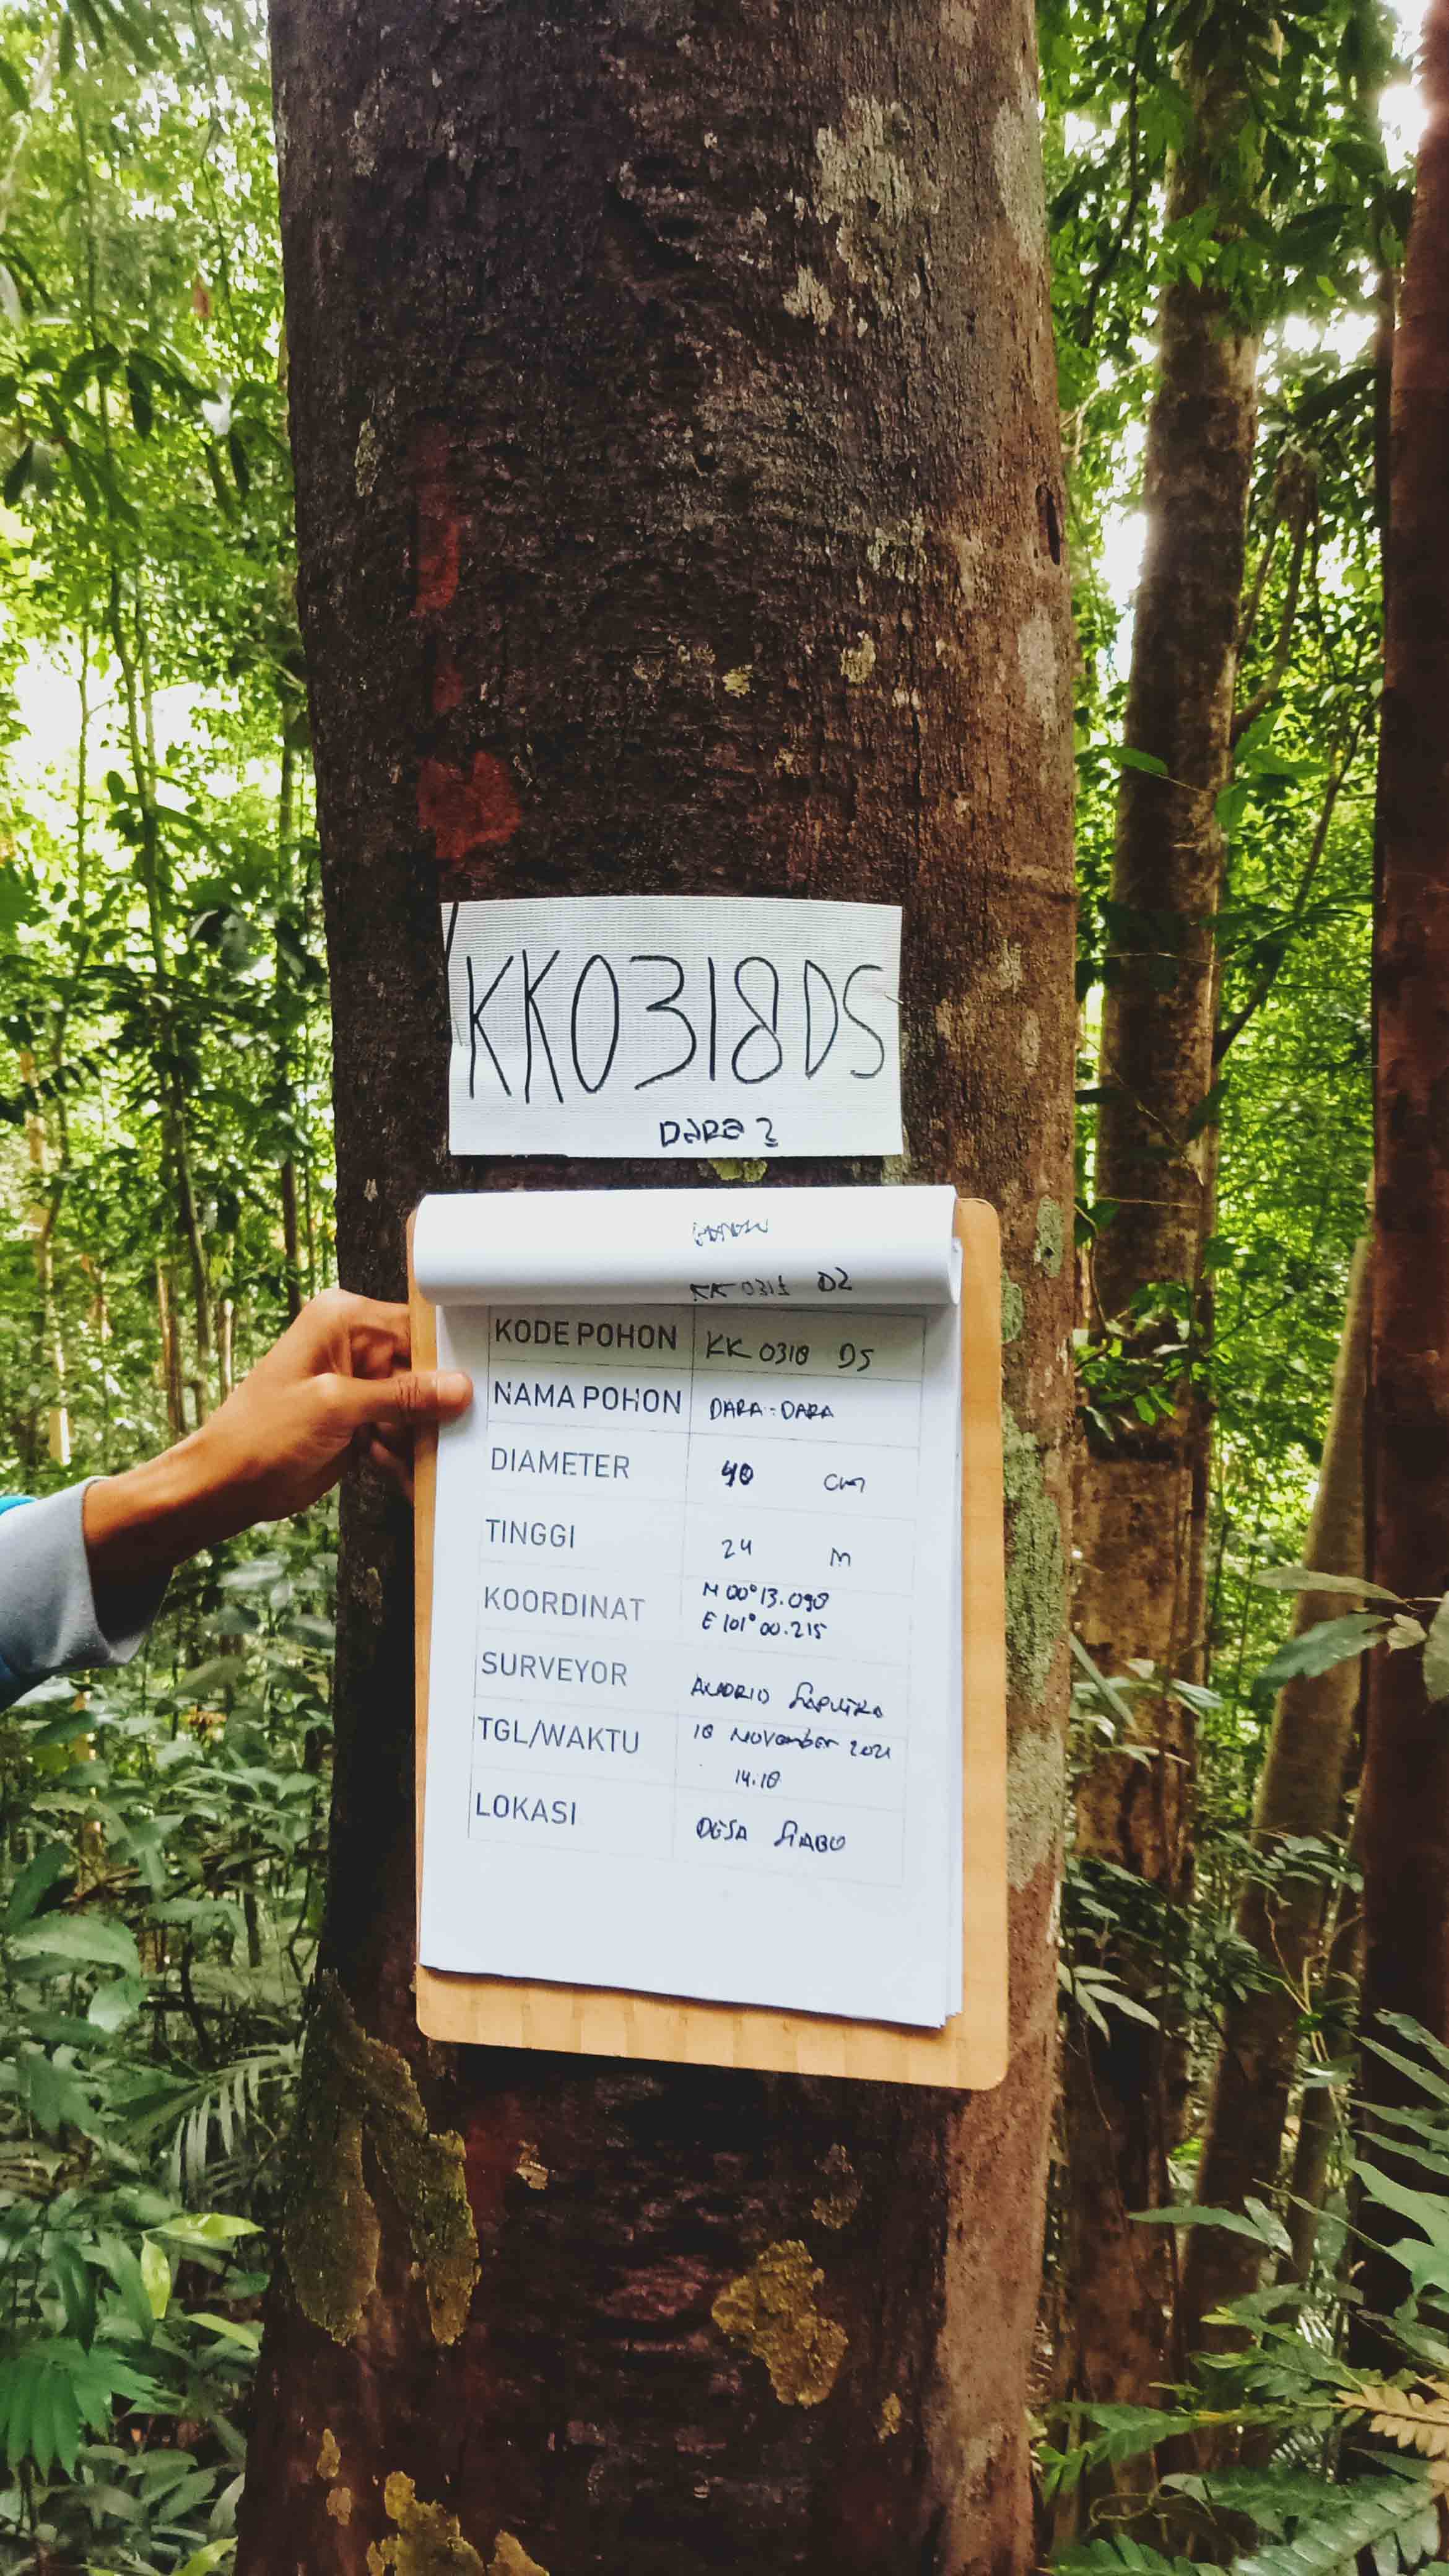 KK0318DS
DARA2
KK 0318 DZ
KODE POHON KK 0318 DS
NAMA POHON DARA-DARA
DIAMETER 40 cm
TINGGI 24 M
KOORDINAT N 00°13.098
E 101°00.215
SURVEYOR SAPUTRA
TGL/WAKTU 18 November 2021
14.18
LOKASI DESA SIABU